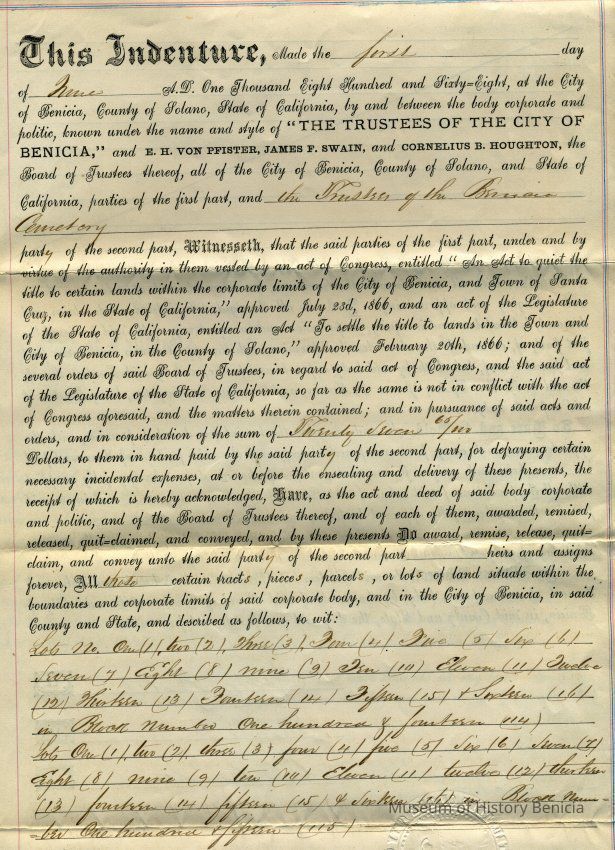 This Indenture, Made the first day
of June A.D. One Thousand Eight Hundred and Sixty=Eight, at the City
of Benicia, County of Solano, State of California, by and between the body corporate and
politic, known under the name and style of "THE TRUSTEES OF THE CITY OF
BENICIA," and E. H. VON PFISTER, JAMES F. SWAIN, and CORNELIUS B. HOUGHTON, the
Board of Trustees thereof, all of the City of Benicia, County of Solano, and State of
California, parties of the first part, and the Trustees of the Benicia
Cemetery
party of the second part, Witnesseth, that the said parties of the first part, under and by
virtue of the authority in them vested by an act of Congress, entitled "An Act to quiet the
title to certain lands within the corporate limits of the City of Benicia, and Town of Santa
Cruz, in the State of California," approved July 23d, 1866, and an act of the Legislature
of the State of California, entitled an Act "To settle the title to lands in the Town and
City of Benicia, in the County of Solano," approved February 20th, 1866; and of the
several orders of said Board of Trustees, in regard to said act of Congress, and the said act
of the Legislature of the State of California, so far as the same is not in conflict with the act
of Congress aforesaid, and the matters therein contained; and in pursuance of said acts and
orders, and in consideration of the sum of Twenty Seven 60/100
Dollars, to them in hand paid by the said party of the second part, for defraying certain
necessary incidental expenses, at or before the ensealing and delivery of these presents, the
receipt of which is hereby acknowledged, Have, as the act and deed of said body corporate
and politic, and of the Board of Trustees thereof, and of each of them, awarded, remised,
released, quit=claimed, and conveyed, and by these presents Do award, remise, release, quit=
claim, and convey unto the said party of the second part heirs and assigns
forever, All those certain tracts, pieces, parcels, or lots of land situate within the
boundaries and corporate limits of said corporate body, and in the City of Benicia, in said
County and State, and described as follows, to wit:
Lots No. One (1), two (2), Three (3), Four (4) Five (5) Six (6)
Seven (7) Eight (8) nine (9) Ten (10) Eleven (11) Twelve
(12) Thirteen (13) Fourteen (14) Fifteen (15) & Sixteen (16)
in Block number One hundred & fourteen (114)
Lots One (1), two (2), three (3) four (4) five (5) Six (6) Seven (7)
Eight (8) nine (9) ten (10) Eleven (11) twelve (12) thirteen
(13) fourteen (14) fifteen (15) & Sixteen (16) in Block Num-
-ber One hundred & fifteen (115)
Museum of History Benicia